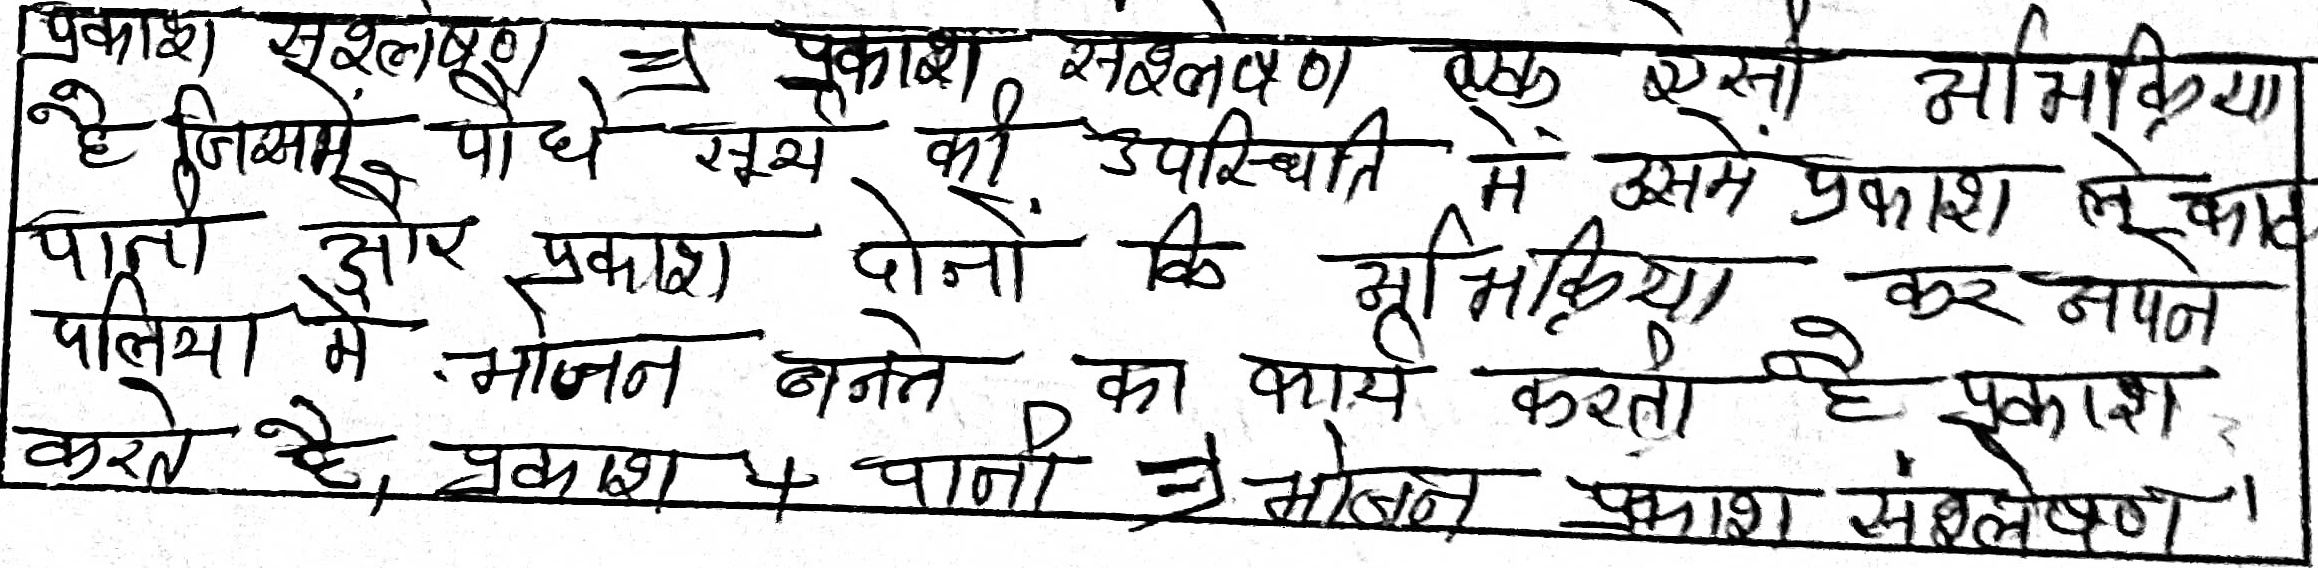 प्रकाश संश्लेषण ⇒ प्रकाश संश्लेषण एक ऐसी अभिक्रिया
है जिसमें पौधे सूर्य की उपस्थिति में उसमें प्रकाश ले
पानी और प्रकाश दोनों कि अभिक्रिया कर अपने
पत्तिया में भोजन बनने का कार्य करती है प्रकाश
करते है, प्रकाश + पानी ⇒ भोजन प्रकाश संश्लेषण।